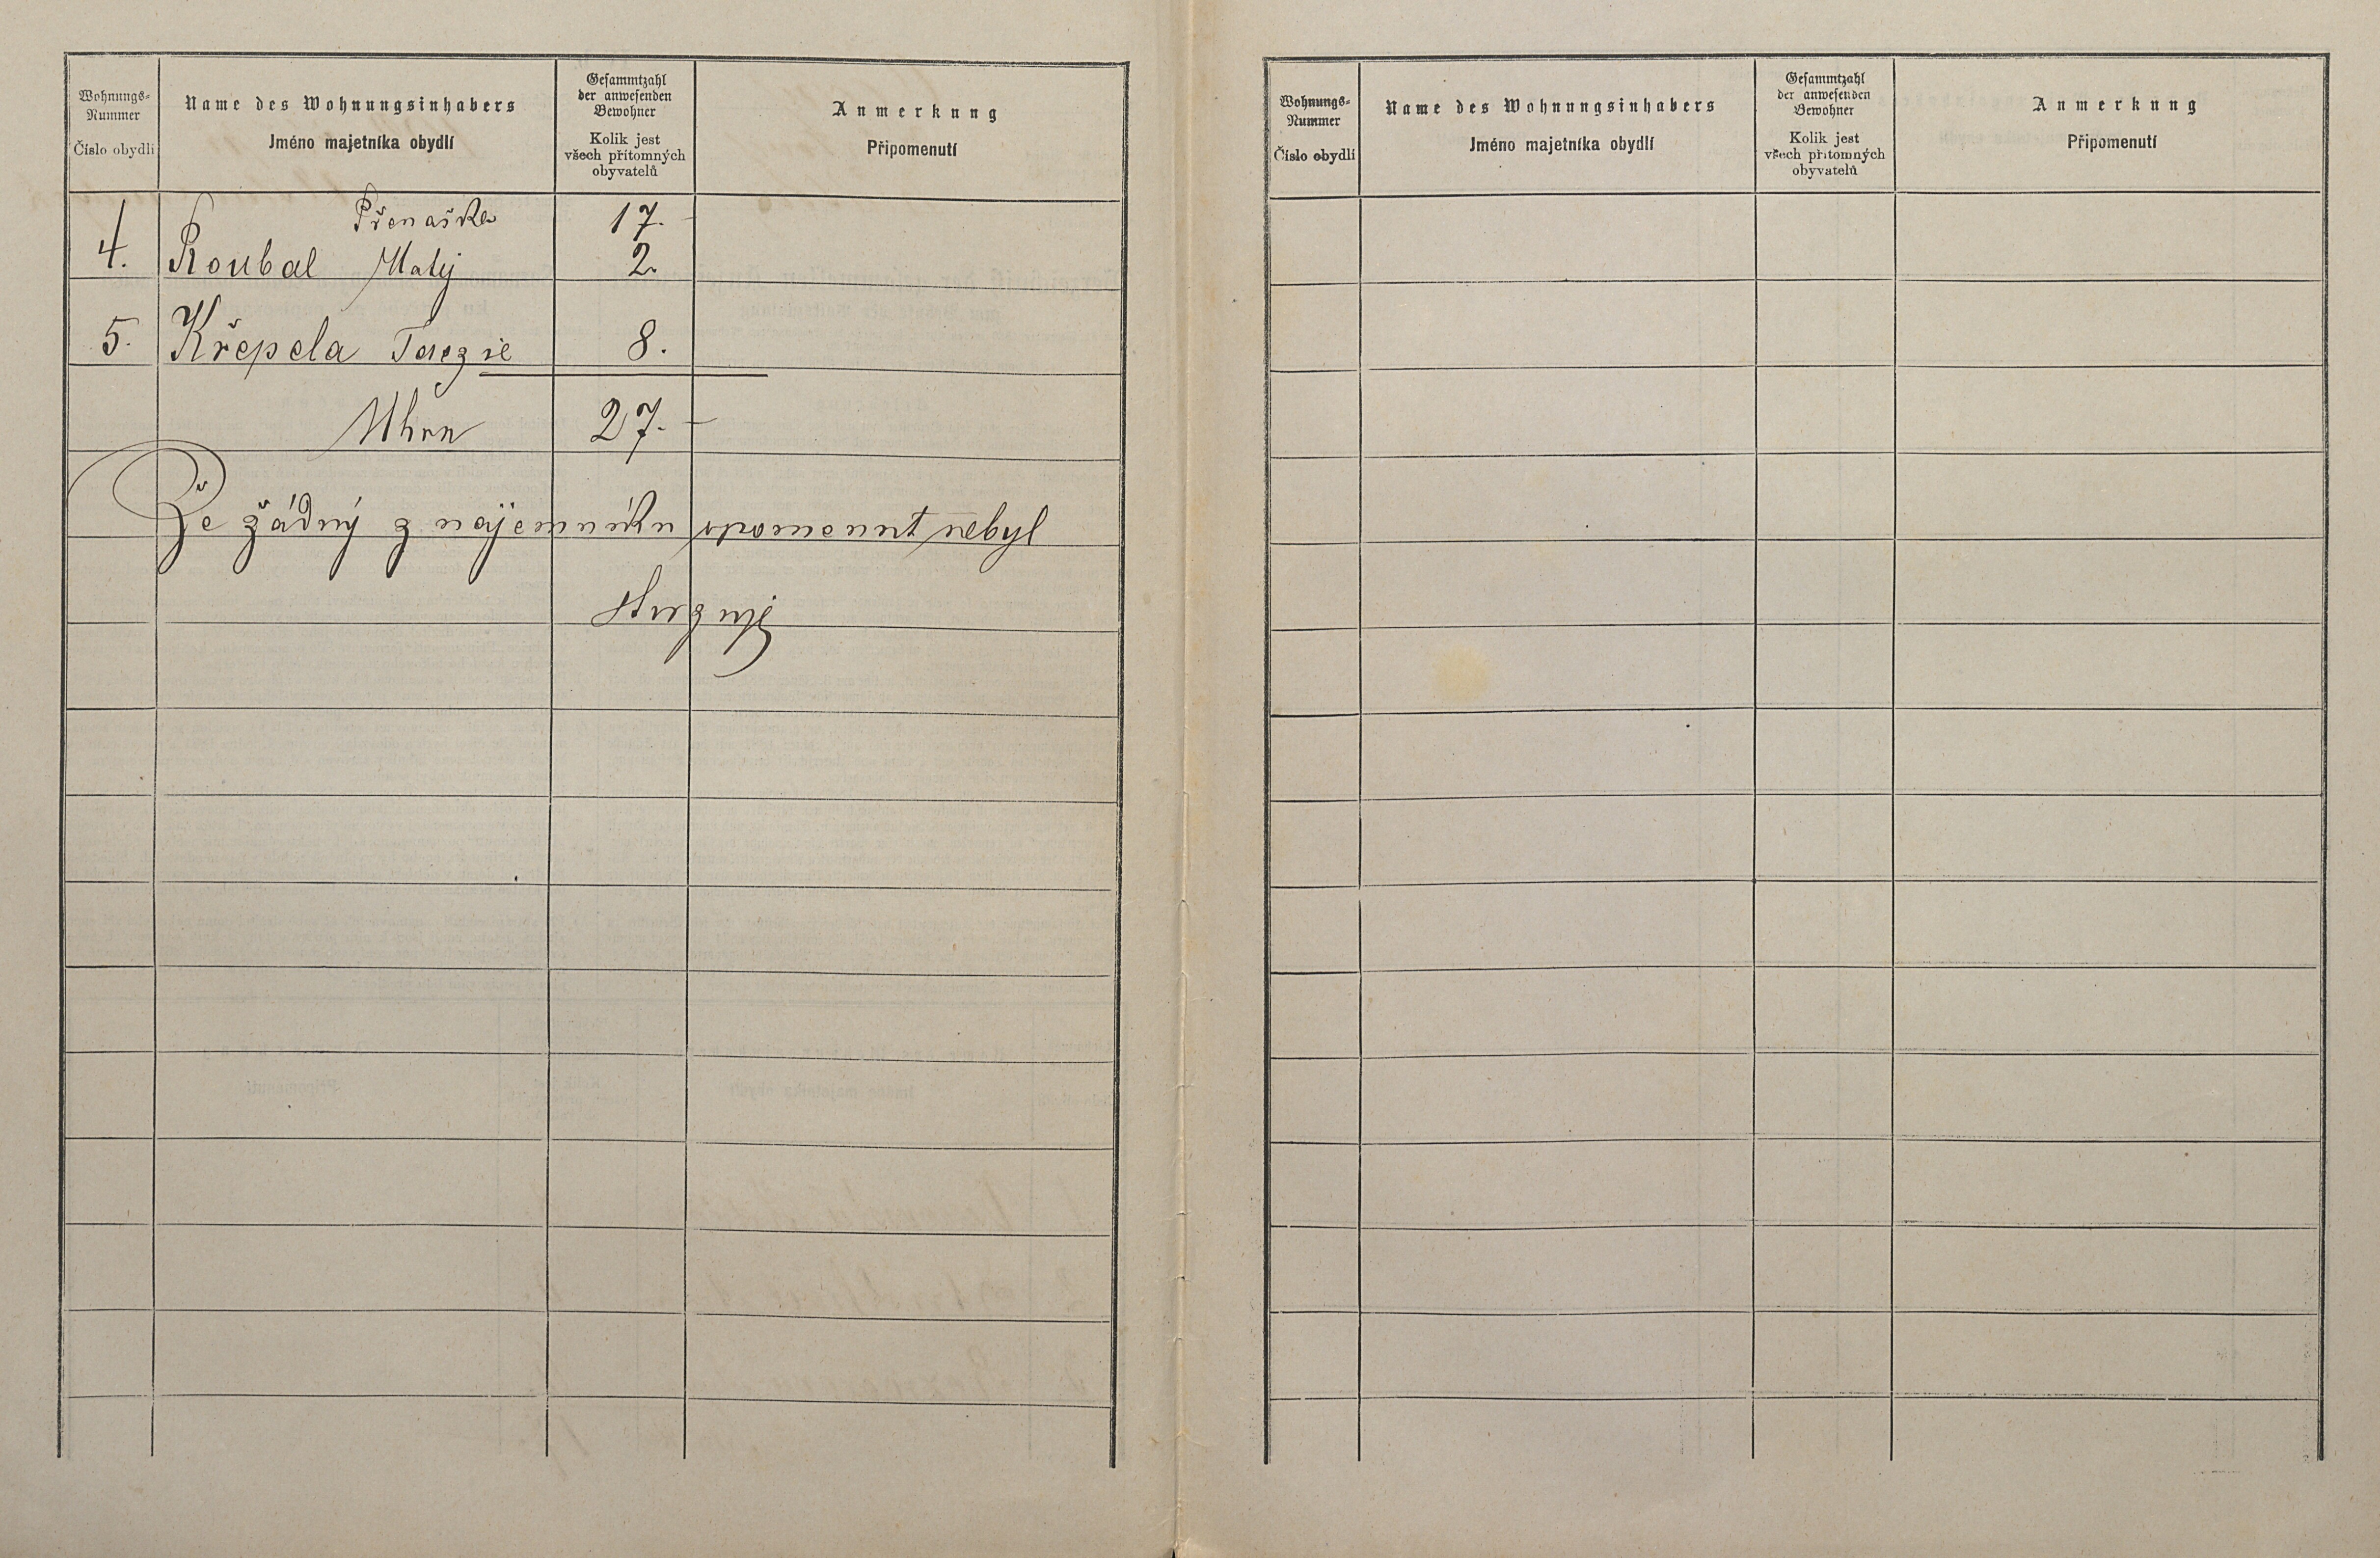 Wohnungs-
Nummer
Číslo obydlí
Name des Wohnungsinhabers
Jméno majetníka obydlí
Gesammtzahl
der anwesenden
Bewohner
Kolik jest
všech přítomných
obyvatelů
Anmerkung
Připomenutí
Přenaška 17.
4. Roubal Matěj 2.
5. Křepela Terezie 8.
Uhrn 27.
Že žádný z nájemníku opomenut nebyl
stvrzuji
Wohnungs-
Nummer
Číslo obydlí
Name des Wohnungsinhabers
Jméno majetníka obydlí
Gesammtzahl
der anwesenden
Bewohner
Kolik jest
všech přítomných
obyvatelů
Anmerkung
Připomenutí